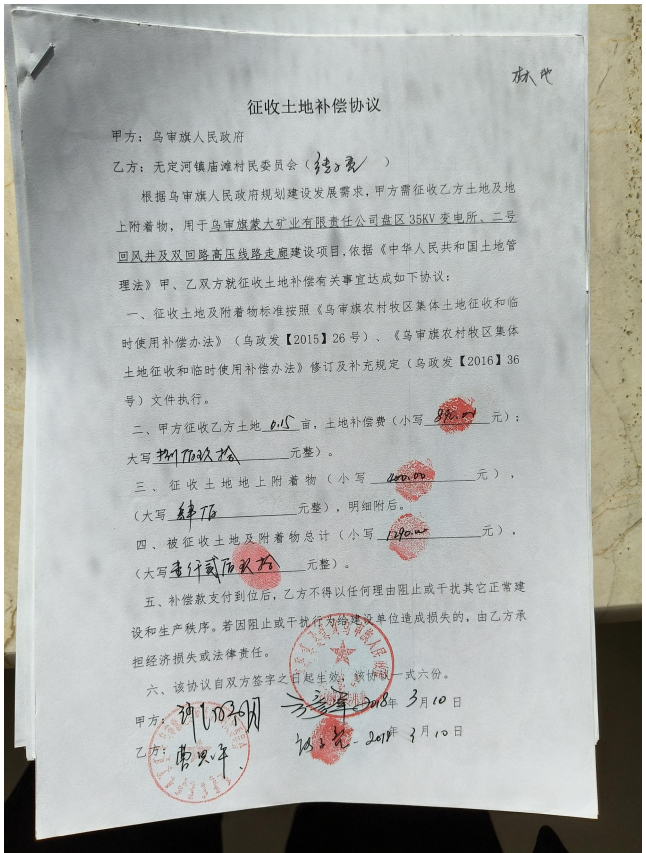 林地
征收土地补偿协议
甲方：乌审旗人民政府
乙方：无定河镇庙滩村民委员会（ ）
根据乌审旗人民政府规划建设发展需求，甲方需征收乙方土地及地
上附着物，用于乌审旗蒙大矿业有限责任公司盘区35KV变电所、二号
回风井及双回路高压线路走廊建设项目，依据《中华人民共和国土地管
理法》甲、乙双方就征收土地补偿有关事宜达成如下协议：
一、征收土地及附着物标准按照《乌审旗农村牧区集体土地征收和临
时使用补偿办法》（乌政发【2015】26号）、《乌审旗农村牧区集体
土地征收和临时使用补偿办法》修订及补充规定（乌政发【2016】36
号）文件执行。
二、甲方征收乙方土地 0.15 亩，土地补偿费（小写 890.00 元）；
大写捌佰玖拾元整）。
三、征收土地地上附着物（小写 400.00 元），
（大写 肆佰 元整），明细附后。
四、被征收土地及附着物总计（小写 1290.00 元），
（大写壹仟贰佰玖拾 元整）。
五、补偿款支付到位后，乙方不得以任何理由阻止或干扰其它正常建
设和生产秩序。若因阻止或干扰行为给建设单位造成损失的，由乙方承
担经济损失或法律责任。
六、该协议自双方签字之日起生效，该协议一式六份。
甲方： 2018年 3月10日
乙方： 2018年 3月10日